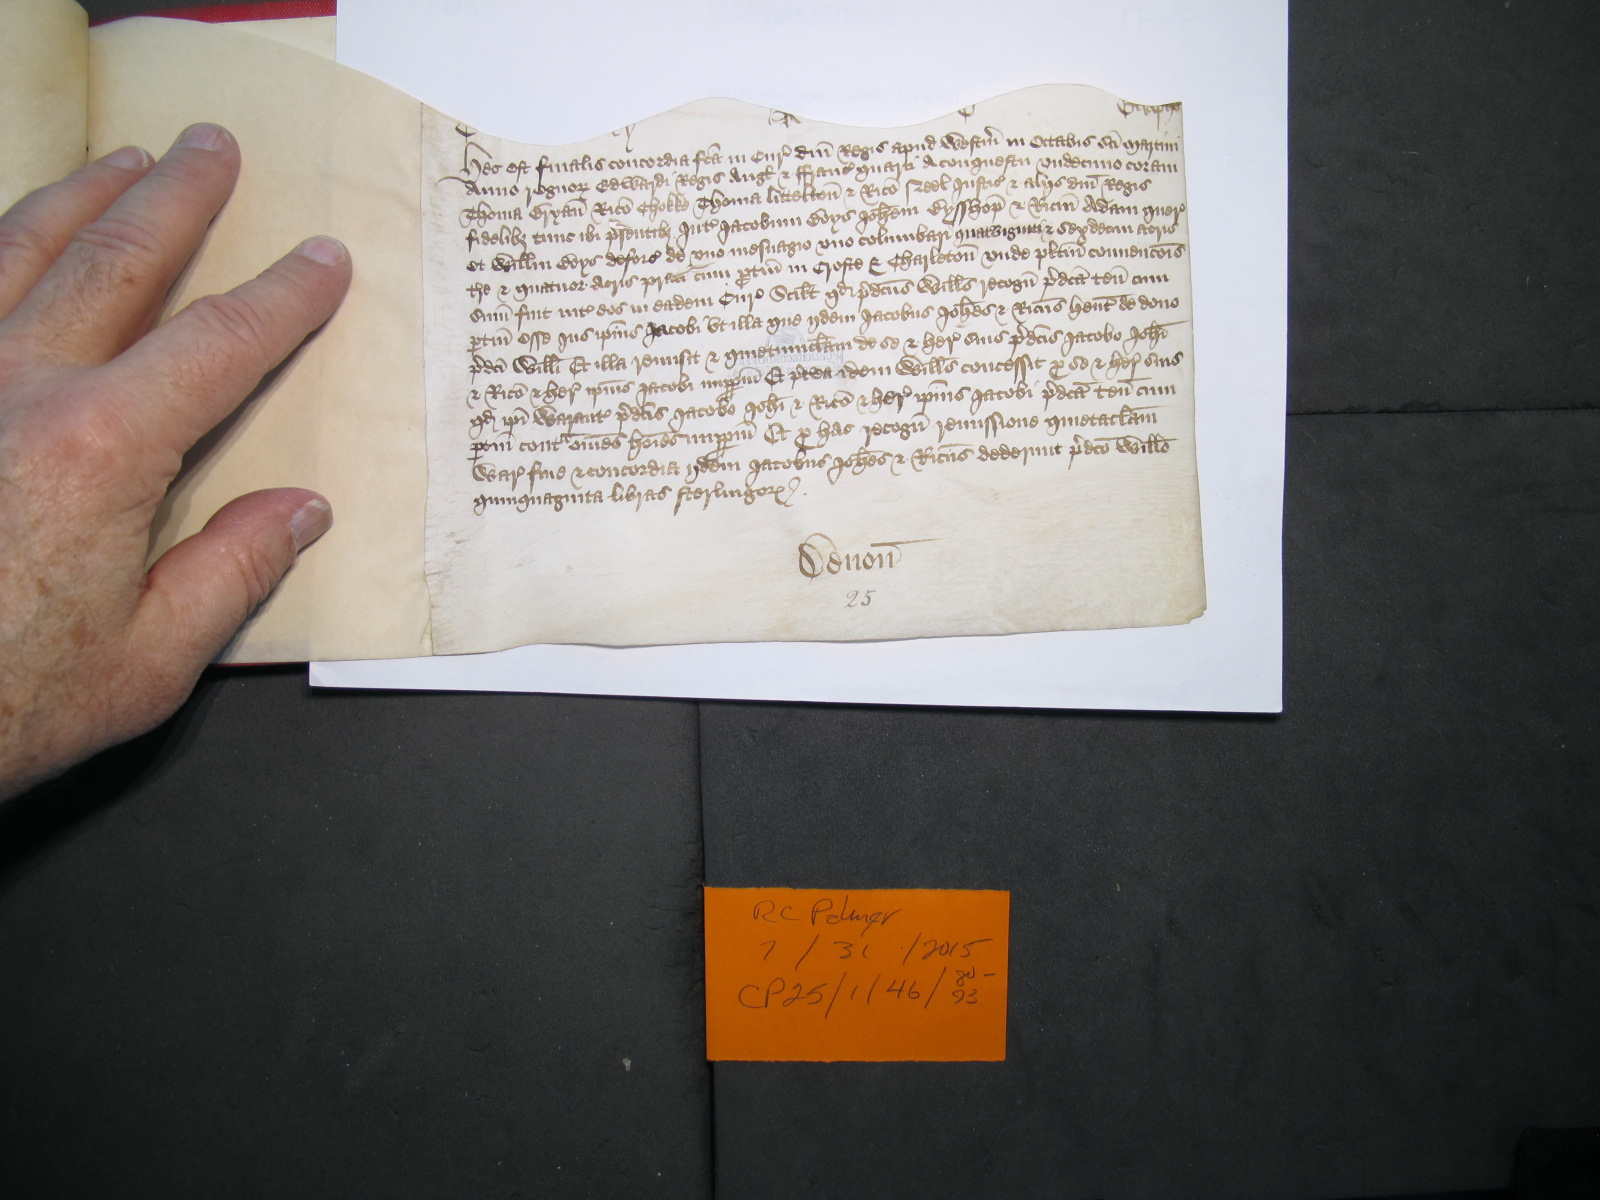 Hec est finalis concordia fcā in Cur' dnī Regis apud Westm̄ in Octabis Sc̄i Martini
Anno regnor' Edwardi Regis Angl' & Franc' quarti A conquestu undecimo coram
Thoma Bryan Rico Chokke Thoma littelton & Rico Neel Justic' & aliis dnī Regis
fidelibȝ tunc ibi p̄sentibȝ Int' Jacobum Boys Johem Bysshop & Ricm̄ Adam quer'
et Willm̄ Boys deforc' de uno mesuagio uno columbari quatviginti & sexdecim acris
tr̄e & quatuor acris prati cum ptin̄ in Crofte & Charleton unde plitm̄ convencōis
sum̄ fuit int' eos in eadem Cur' Scilt qd p̄dcūs Wills recogn̄ p̄dcā ten̄ cum
ptin̄ esse ius ip̄ius Jacobi ut illa que ijdem Jacobus Johes & Ricūs hent de dono
p̄dc̄i Willi Et illa remisit & quietumclam̄ de se & her' suis p̄dcīs Jacobo Johi
& Rico & her' ip̄ius Jacobi imppm̄ Et p̄tea idem Wills concessit p se & her' suis
qd ip̄i Warant' p̄dcīs Jacobo Johi & Rico & her' ip̄ius Jacobi p̄dcā ten̄ cum
ptin̄ cont' om̄es hoīes imppm̄ Et p hac recogn̄ remissione quietaclam̄
War' fine & concordia ijdem Jacobus Johes & Ricūs dederunt p̄dcō Willo
quinquaginta libras sterlingor'
Devon̄
25
RC Palmer
7 / 31 / 2015
CP25/1/46/80-
93